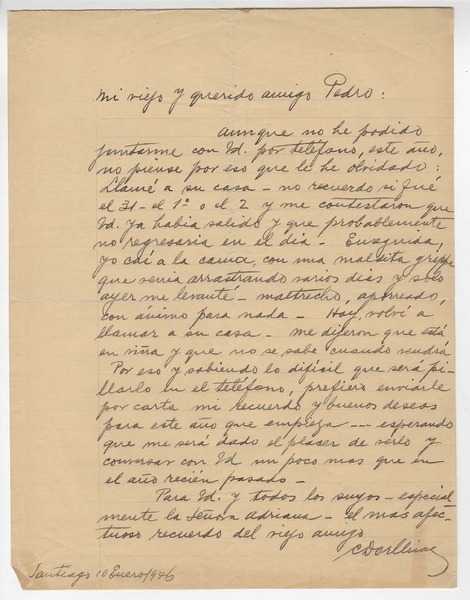 Mi viejo y querido amigo Pedro:
Aunque no he podido
juntarme con Vd. por teléfono, este año,
no piense por eso que le he olvidado:
Llamé a su casa - no recuerdo si fué
el 31 - el 1º o el 2 y me contestaron que
Vd. ya habia salido y que probablemente
no regresaria en el dia - Enseguida,
yo caí a la cama, con una maldita grippe
que venia arrastrando varios dias y solo
ayer me levanté - maltrecho, aporreado,
con ánimo para nada - Hoy, volví a
llamar a su casa - me dijeron que está
en viña y que no se sabe cuando vendrá
Por eso y sabiendo lo difísil que será pi-
llarlo en el teléfono, prefiero enviarle
por carta mi recuerdo y buenos deseos
para este año que empieza --- esperando
que me será dado el placer de verlo y
conversar con Vd un poco mas que en
el año recién pasado -
Para Vd. y todos los suyos - especial
mente la Señora Adriana - el mas afec-
tuoso recuerdo del viejo amigo
Santiago 10 Enero/946